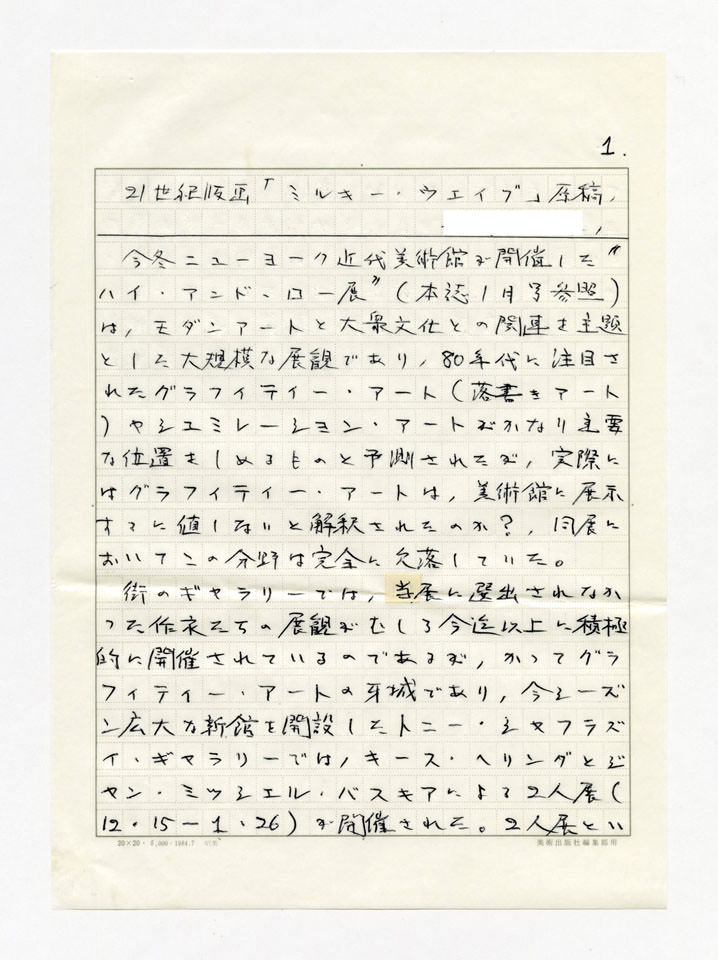 1.
21世紀版画「ミルキー・ウエイブ」原稿,
,
今冬ニューヨーク近代美術館が開催した“
ハイ・アンド・ロー展”(本誌1月号参照)
は,モダンアートと大衆文化との関連を主題
とした大規模な展観であり,80年代に注目さ
れたグラフィティー・アート(落書きアート
)やシュミレーション・アートがかなり主要
な位置をしめるものと予測されたが,実際に
はグラフィティー・アートは,美術館に展示
するに値しないと解釈されたのか?,同展に
おいてこの分野は完全に欠落していた。
街のギャラリーでは,当展に選出されなか
った作家たちの展観がむしろ今迄以上に積極
的に開催されているのであるが,かつてグラ
フィティー・アートの牙城であり,今シーズ
ン広大な新館を開設したトニー・シャフラズ
ィ・ギャラリーでは,キース・ヘリングとジ
ャン・ミッシェル・バスキアによる2人展(
12・15−1・26)が開催された。2人展とい
20×20・5,000・1984.7
美術出版社編集部用